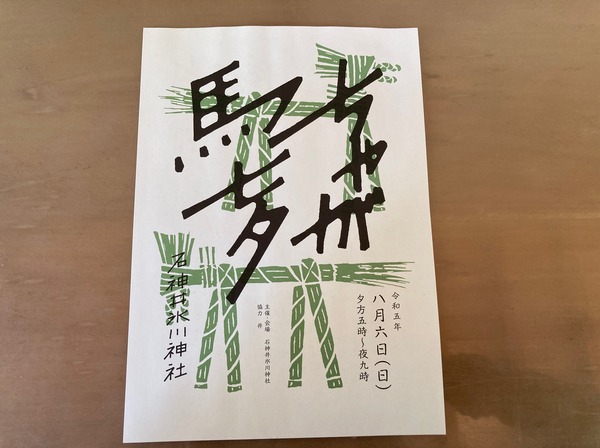 ちゃが
馬
七夕
令和五年
八月六日（日）
夕方五時～夜九時
主催・会場　石神井氷川神社
協力　井
石神井氷川神社